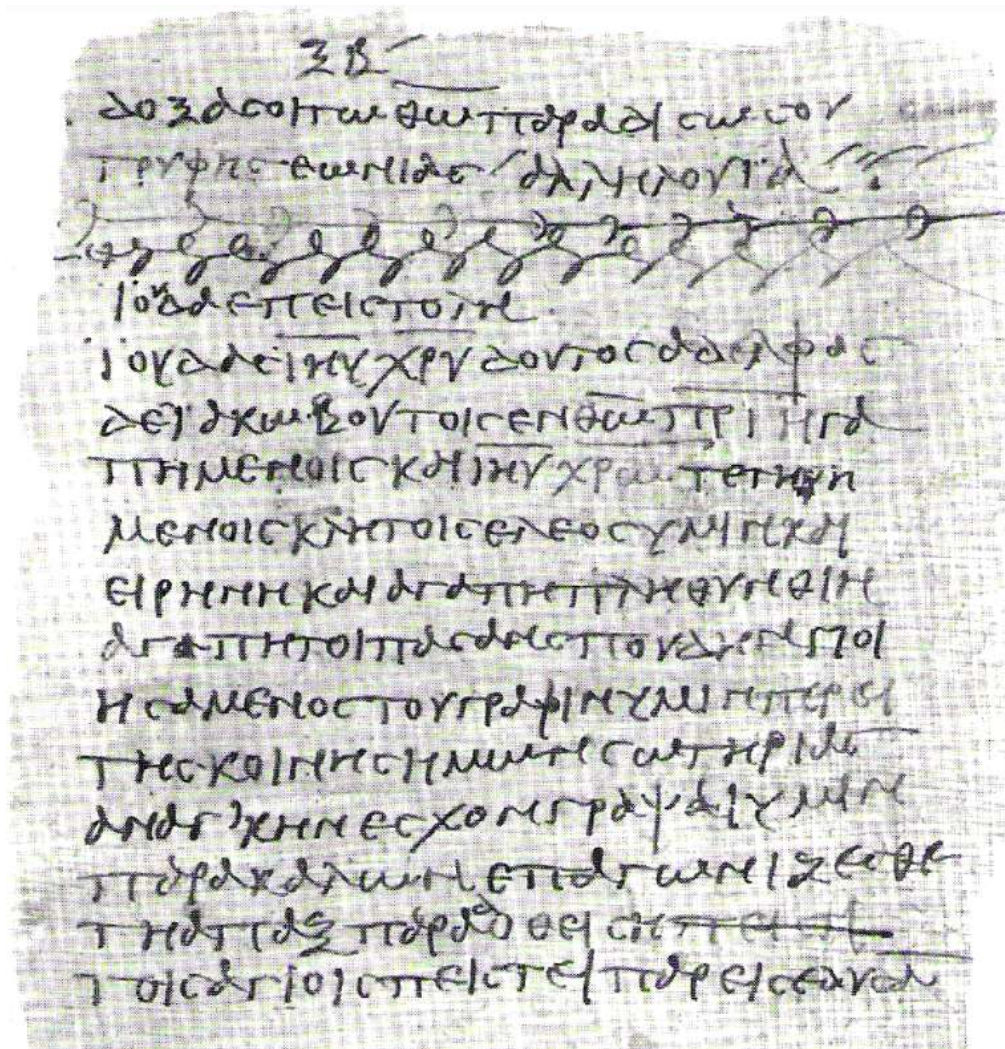 ξβ
δοξασοιτωθωπαραδισωστου
τρυφηςεωνιας αλληλουϊα
ιουδαεπειστολη
ιουδαςιηυχρυδουλοςαδελφος
δεϊακωβουτοισενθωπριηγα
πημενοισκαιιηυχρωτετηρη
μενοισκλητοισελεοσυμινκαι
ειρηνηκαιαγαπηπληθυνθιη
αγαπητοιπασανσπουδηνποι
ησαμενοστουγραφινυμινπερει
τησκοινησημωνσωτηριας
αναγ᾿κηνεσχονγραψαιυμιν
παρακαλωνεπαγωνιζεσθε
τηαπαξπαραδοθεισηπειστι
τοισαγιοισπειστειπαρεισεδυσα